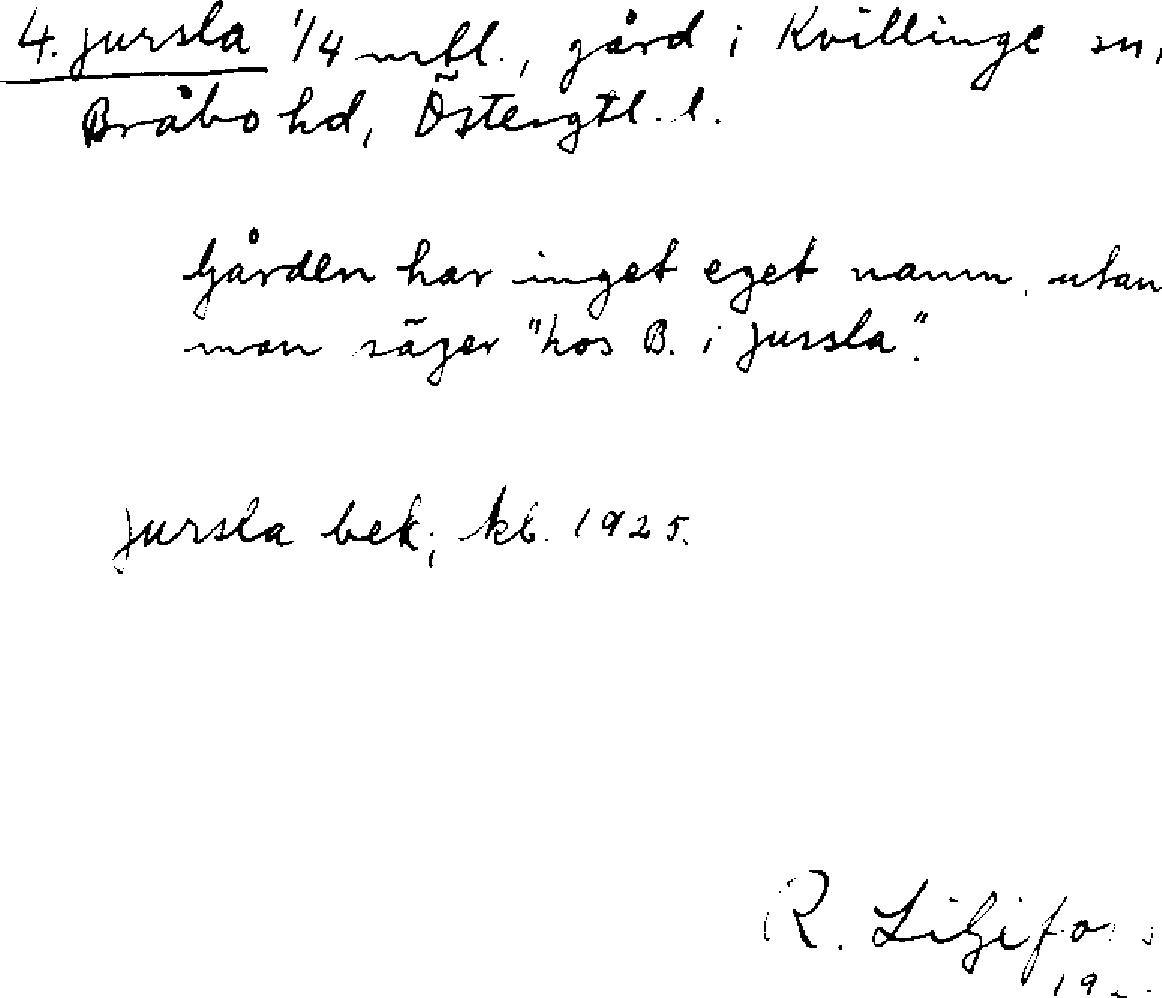 4. Jursla 1/4 mtl., gård i Kvillinge sn,
Bråbo hd, Östergtl. l.
Gården har inget eget namn, utan
man säger "hos B. i Jursla".
Jursla bek; kb. 1925.
R. Liljefors